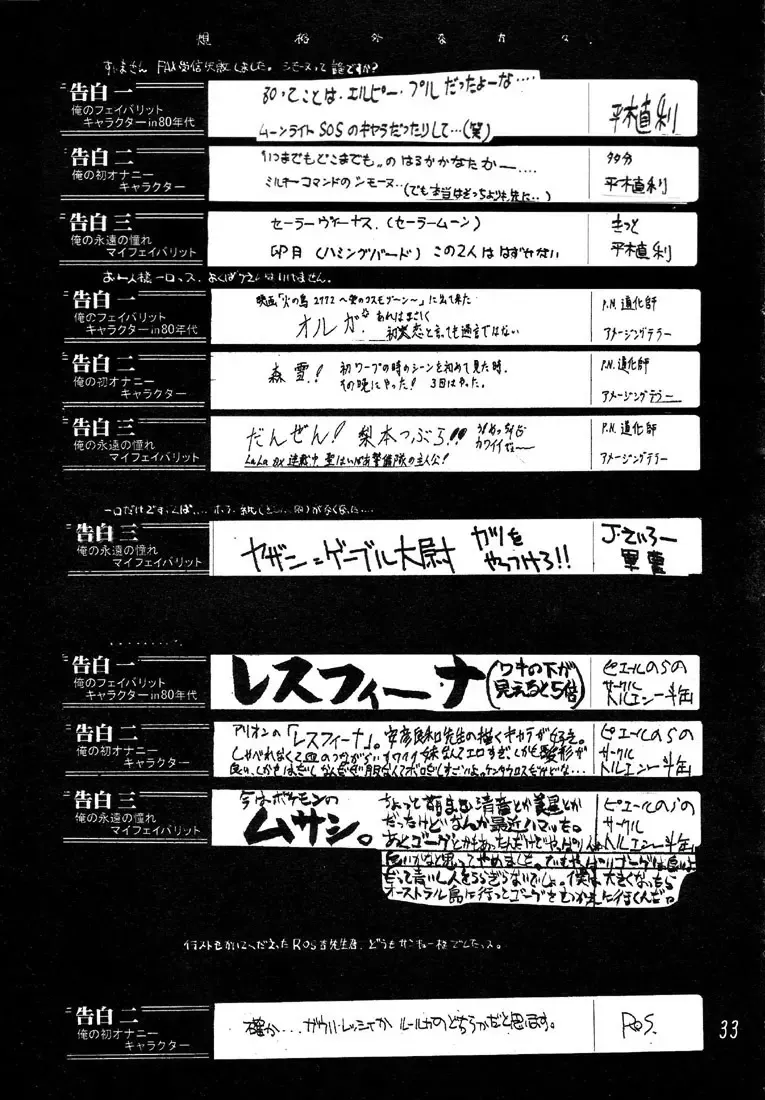 想 外 な 方 々.
すいません FAX受信失敗しました。シモーヌって誰ですか?
告白一
俺のフェイバリット
キャラクターin80年代
80ってことは、エルピー・プルだったよーな....
ムーンライトSOSのキャラだったりして…(笑)
平木直利
告白二
俺の初オナニー
キャラクター
"いつまでもどこまでも"のはるかかなたか—....
ミルキーコマンドのシモーヌ..(でも本当はどっちより先に..)
多分
平木直利
告白三
俺の永遠の憧れ
マイフェイバリット
セーラーヴィーナス.(セーラームーン)
卯月(ハミングバード)この2人ははずせない
きっと
平木直利
告白一
俺のフェイバリット
キャラクターin80年代
映画「火の鳥2772〜愛のコスモゾーン〜」に出て来た
オルガ。あれはまさしく
初恋と言っても過言ではない
P.N.道化師
アメージングテラー
告白二
俺の初オナニー
キャラクター
森雪!
初ワープの時のシーンを初めて見た時.
その晩にやった!3回はやった。
P.N.道化師
アメージングテラー
告白三
俺の永遠の憧れ
マイフェイバリット
だんぜん!梨本つぶら!!
カワイイぜ〜
LaLaで連載中
の主人公!
P.N.道化師
アメージングテラー
告白三
俺の永遠の憧れ
マイフェイバリット
ヤザン=ゲーブル大尉
カツを
やっつけろ!!
J・さいろー
軍曹
告白一
俺のフェイバリット
キャラクターin80年代
レスフィーナ
(ワキの下が
見えると5倍)
ピエールのらの
サークル
トルエン一斗缶
告白二
俺の初オナニー
キャラクター
アリオンの「レスフィーナ」。安彦良和先生の描くキャラが好き。
しゃべれなくて血のつながらない
妹なんてエロすぎ、しかも髪形が
ピエールのらの
サークル
トルエン一斗缶
告白三
俺の永遠の憧れ
マイフェイバリット
今はポケモンの
ムサシ。
ちょっと前まで清音とか美星とか
だったけどなんか最近ハマッた。
あとゴーグとかもあったんだけどやっぱり
白いかなと思ってやめました。でもやっぱりゴーグは良いよ
だって青いし人をうらぎらないでしょ。僕は大きくなったら
オーストラル島に行ってゴーグをつかまえに行くんだ。
ピエールのらの
サークル
トルエン一斗缶
イラストもかいてくださったRoS吉先生, どうもサンキュー様でしたっス。
告白二
俺の初オナニー
キャラクター
確か...ガウ・ハ・レッシィか ルー・ルカのどちらかだと思います。
RoS.
33